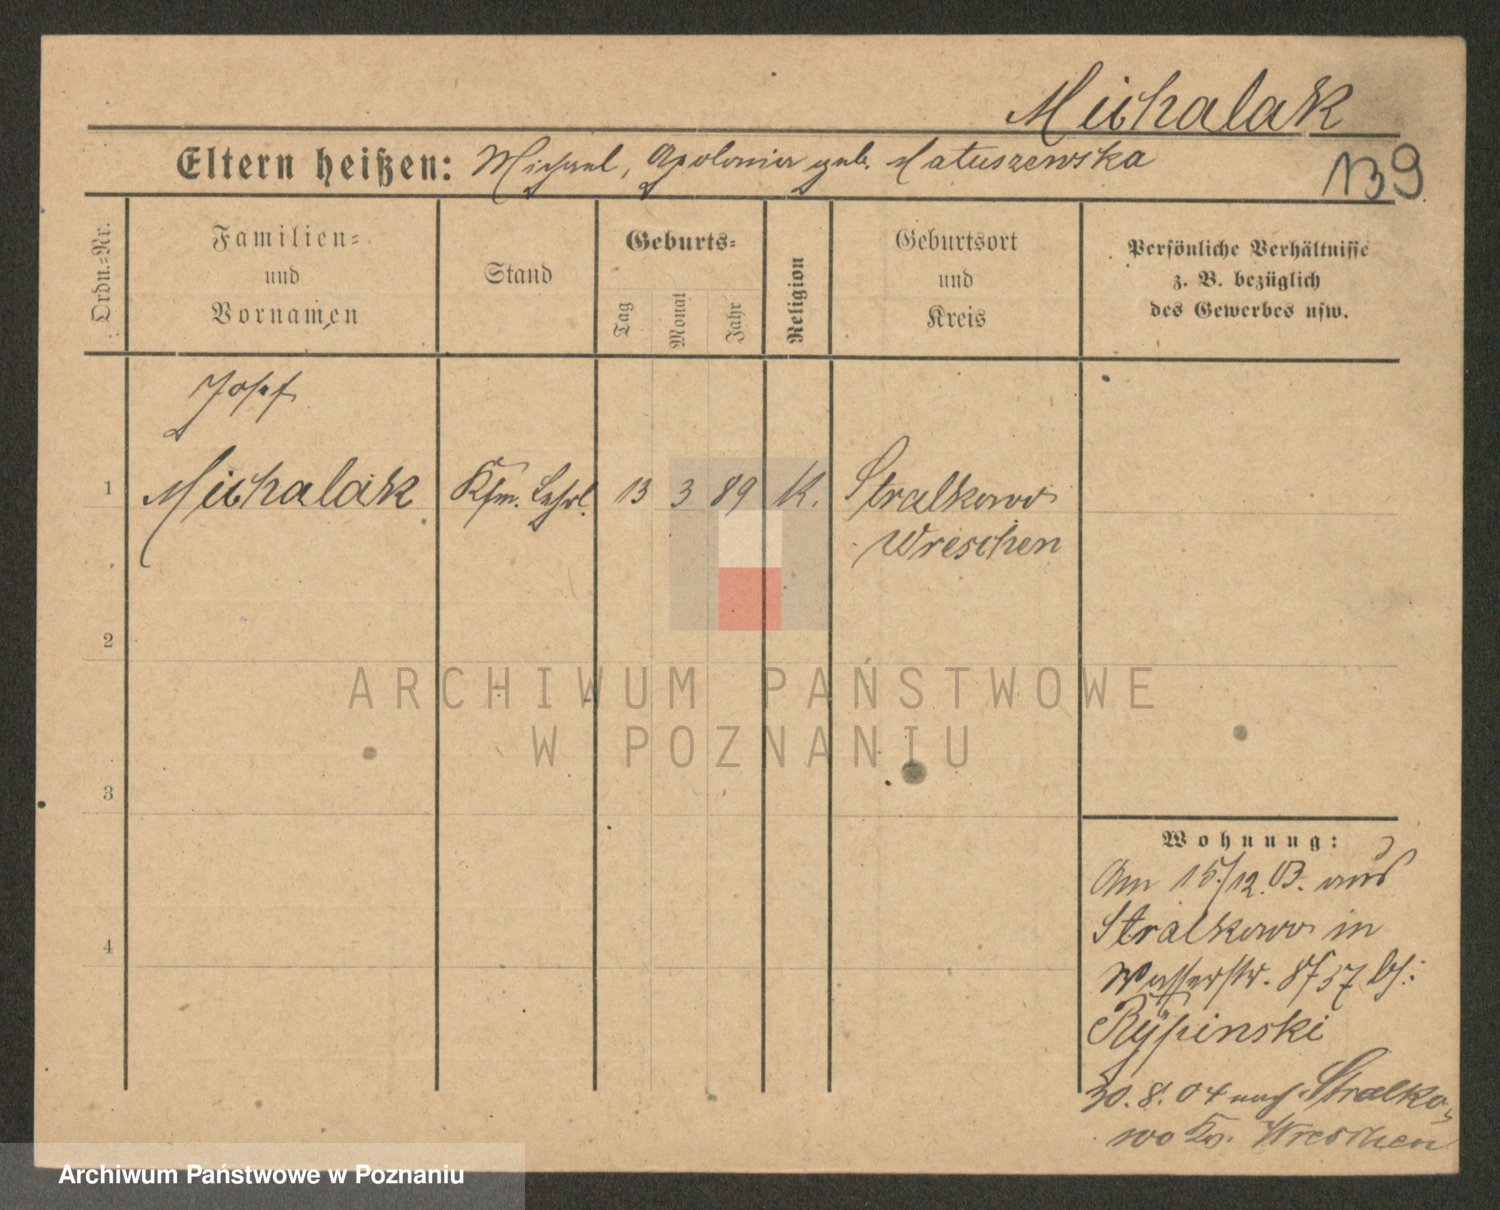 Michalak
139
Eltern heißen: Michael, Apolonia geb. Matuszewska
Ordn.-Nr.
Familien-
und
Vornamen
Stand
Geburts-
Tag
Monat
Jahr
Religion
Geburtsort
und
Kreis
Persönliche Verhältnisse
z. B. bezüglich
des Gewerbes usw.
Josef
1 Michalak Kfm. Lehrl. 13 3 89 K. Stralkowo
Wreschen
2
ARCHIWUM PAŃSTWOWE
W POZNANIU
3
Wohnung:
Am 15/12. 03. aus
Stralkowo in
4
Wasserstr. bei:
Rypinski
30. 8. 04 nach Stralko-
wo Kr. Wreschen
Archiwum Państwowe w Poznaniu